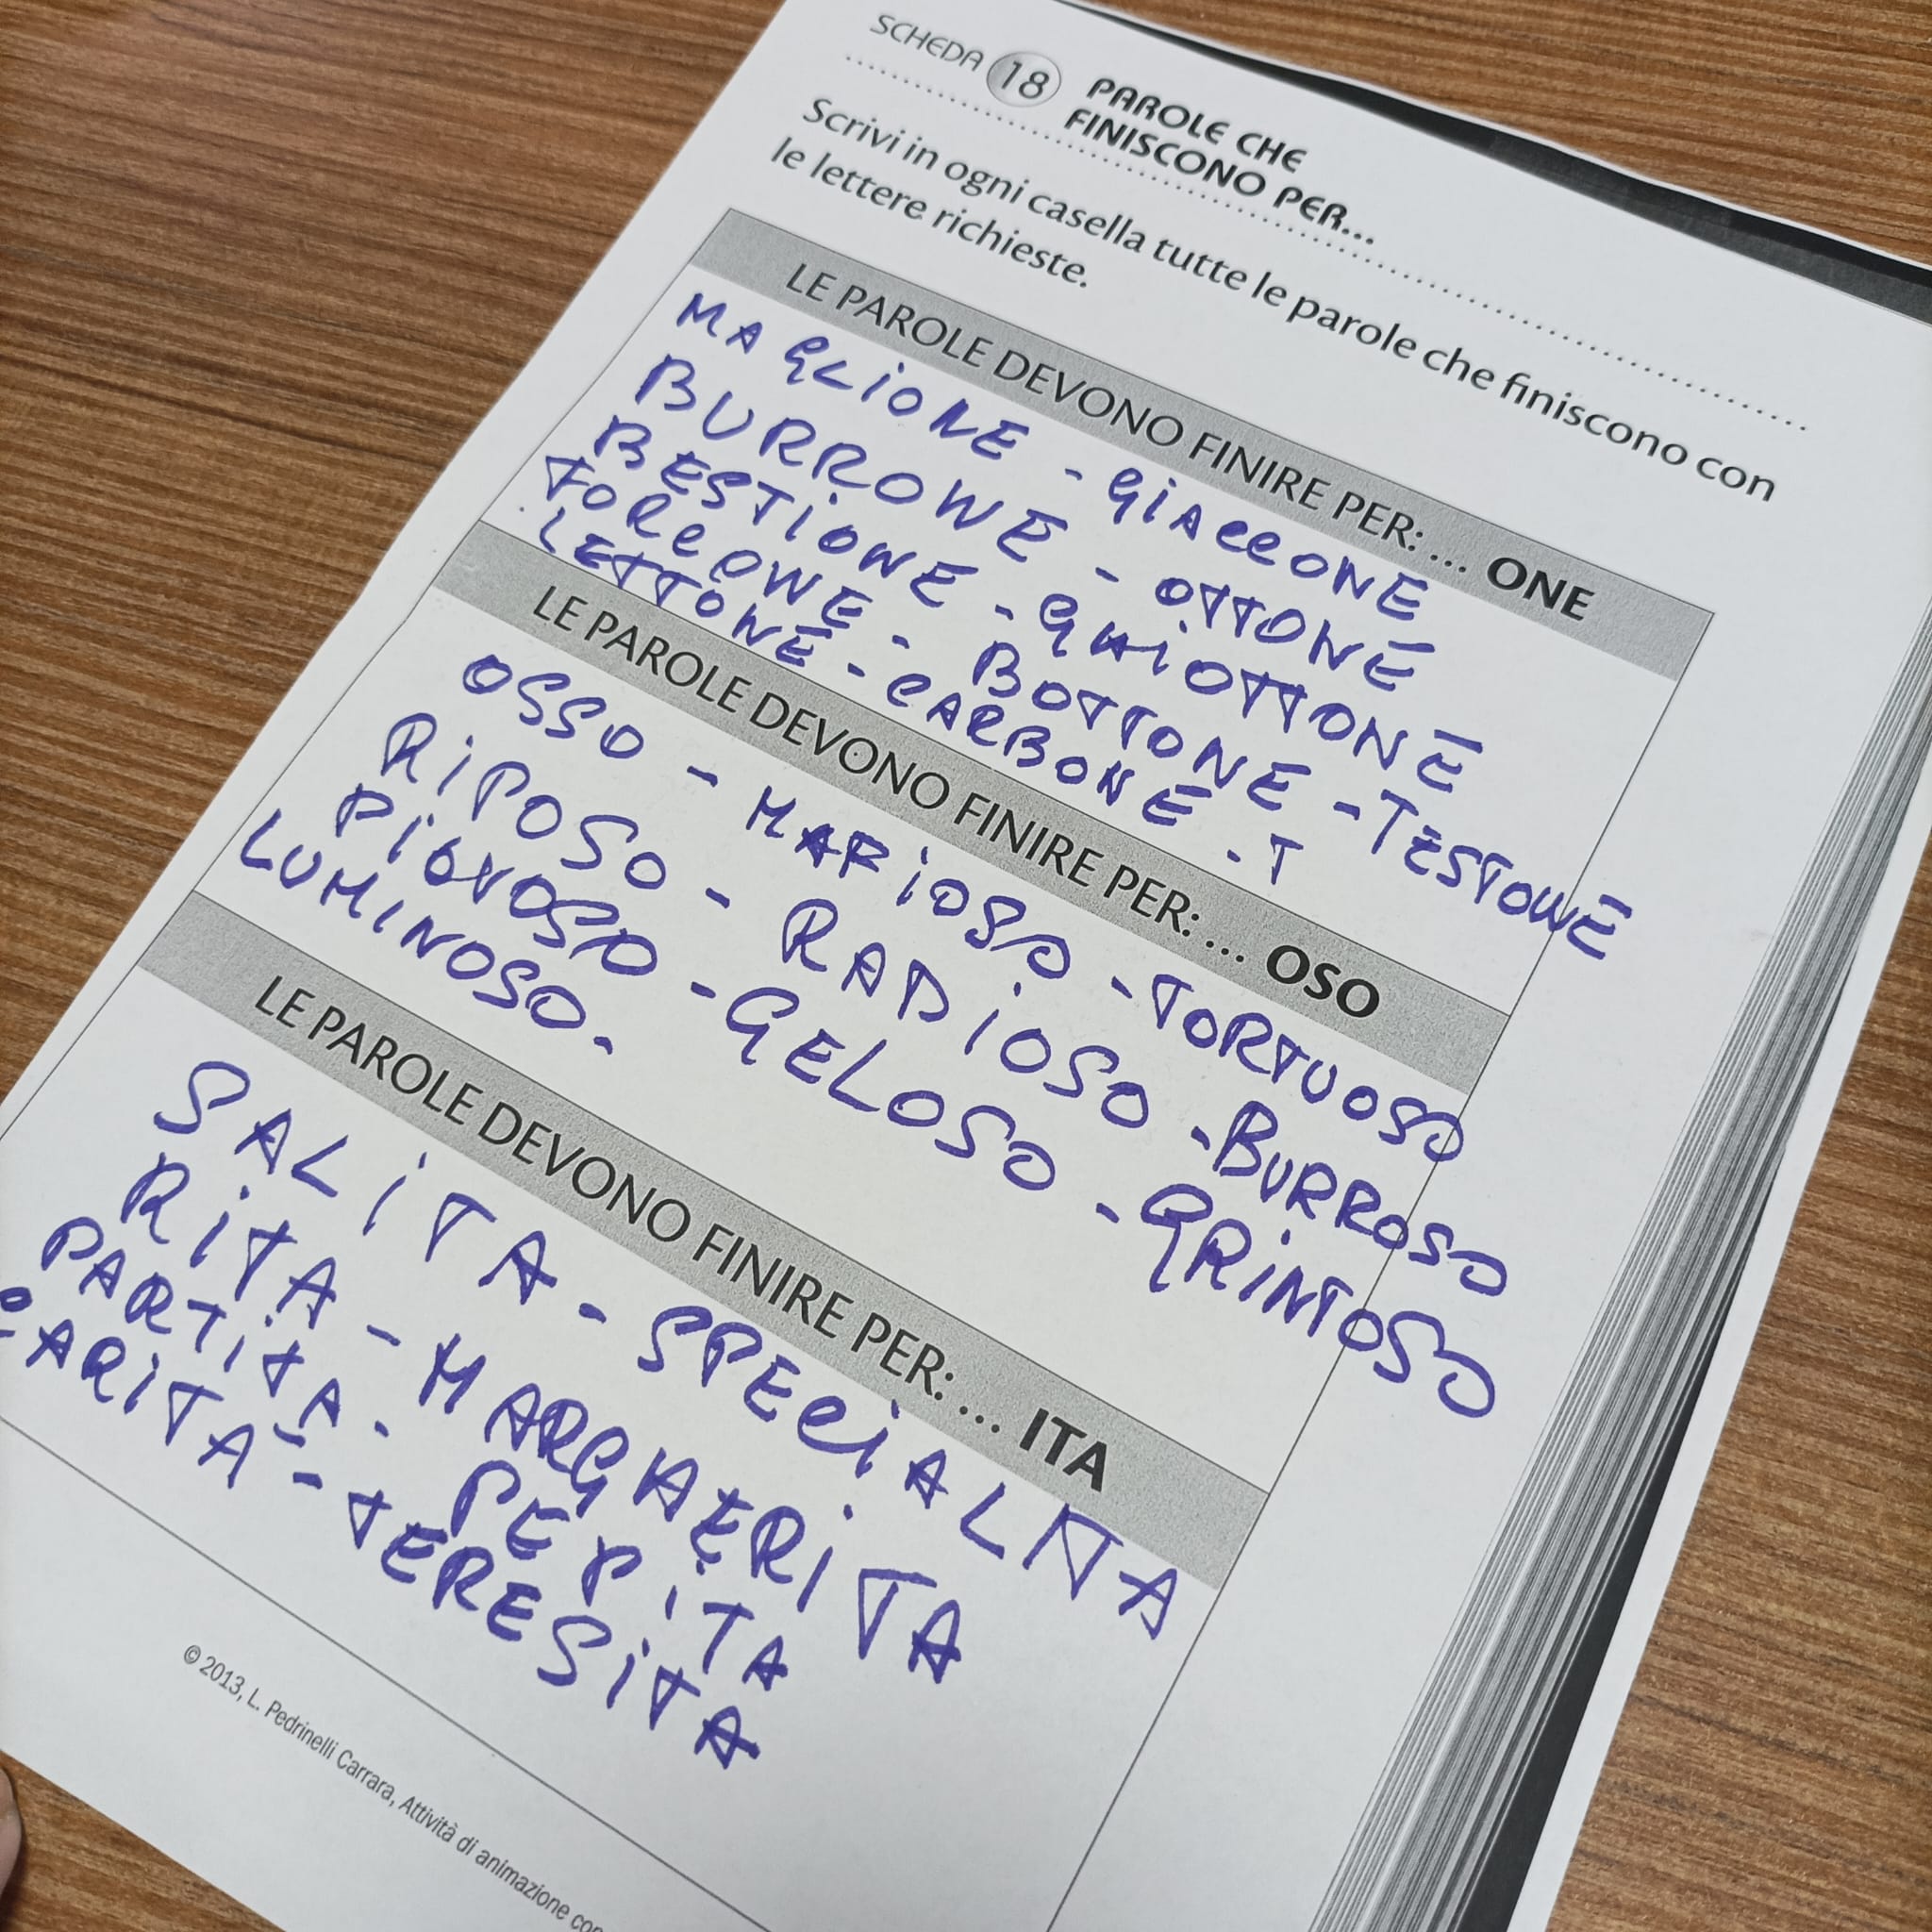 SCHEDA 18 PAROLE CHE
FINISCONO PER...
Scrivi in ogni casella tutte le parole che finiscono con
le lettere richieste.
LE PAROLE DEVONO FINIRE PER: ... ONE
MAGLIONE - GIACCONE
BURRONE - OTTONE
BESTIONE - GHIOTTONE
TORCONE - BOTTONE - TESTONE
LETTONE - CARBONE - T
LE PAROLE DEVONO FINIRE PER: ... OSO
OSSO - MAFIOSO - TORTUOSO
RIPOSO - RADIOSO - BURROSO
PIOVOSO - GELOSO - GRINTOSO
LUMINOSO -
LE PAROLE DEVONO FINIRE PER: ... ITA
SALITA - SPECIALITA
RITA - MARGHERITA
PARTITA - PEPITA
CARITA - TERESITA
© 2013, L. Pedrinelli Carrara, Attività di animazione con